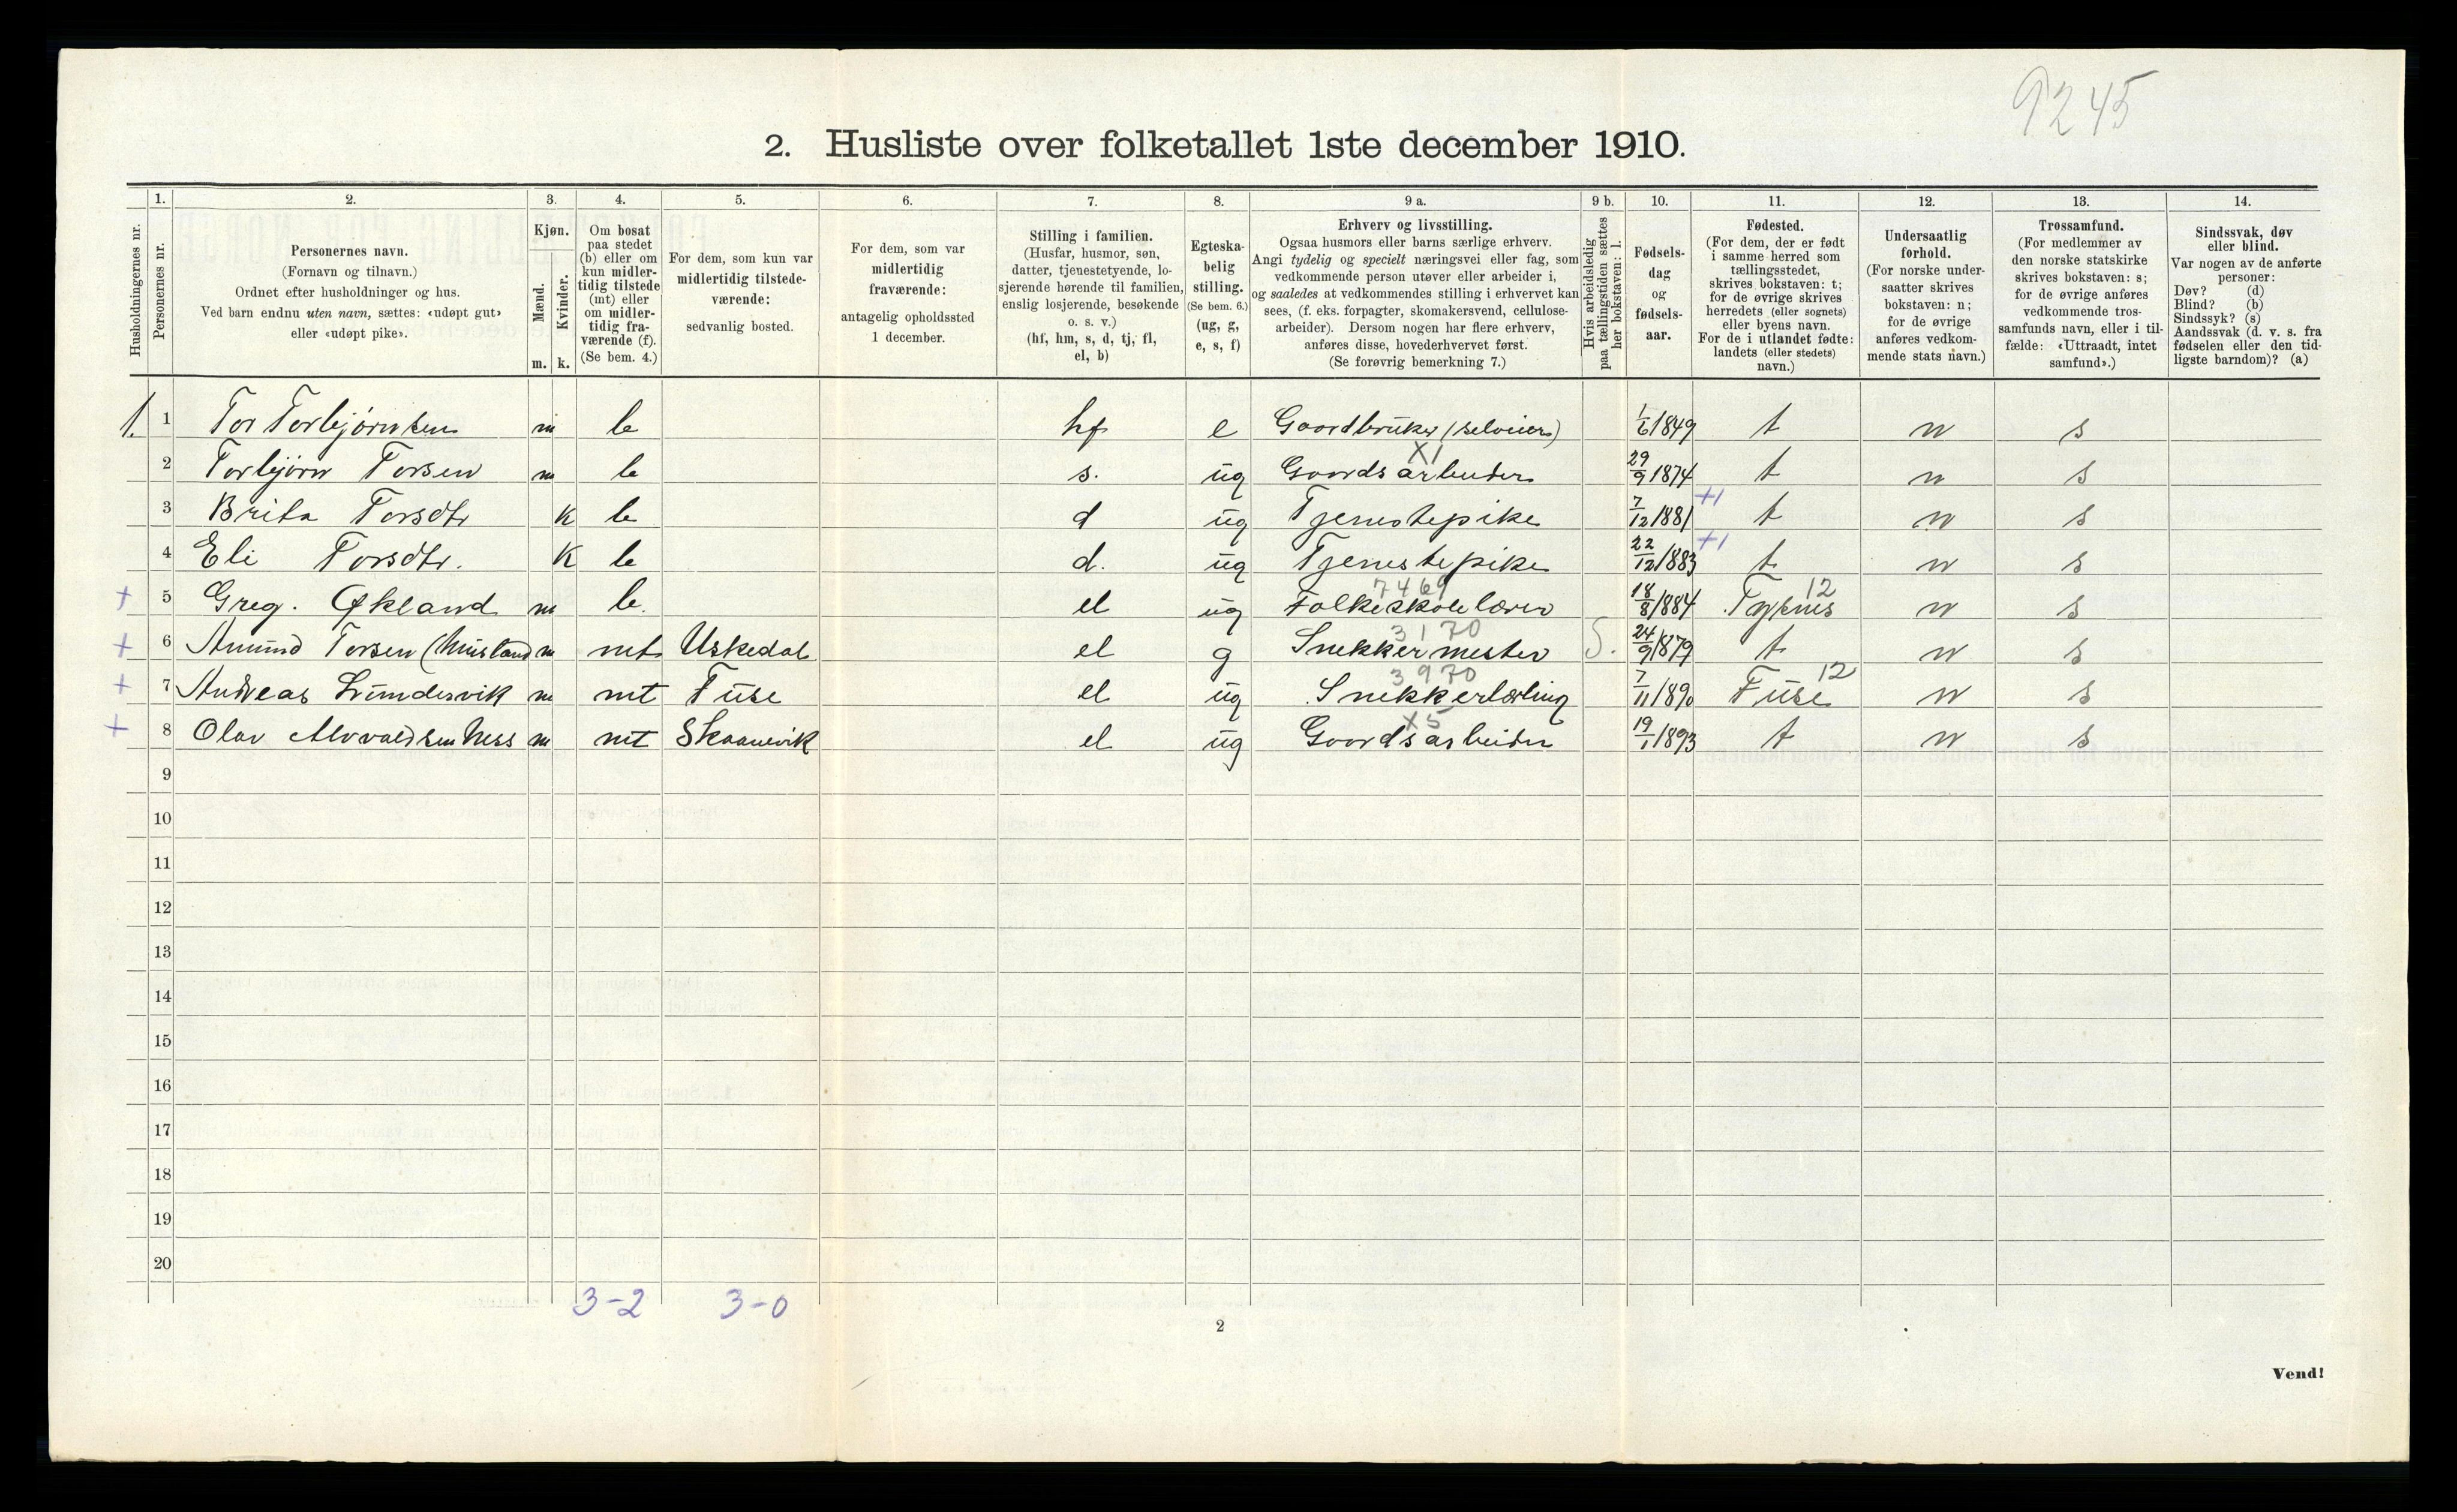 9245
2. Husliste over folketallet 1ste december 1910.
Husholdningernes nr.
1.
Personernes nr.
2.
Personernes navn.
(Fornavn og tilnavn.)
Ordnet efter husholdninger og hus.
Ved barn endnu uten navn, sættes: «udøpt gut»
eller «udøpt pike».
3.
Kjøn.
Mænd.
Kvinder.
m. k.
4.
Om bosat
paa stedet
(b) eller om
kun midler-
tidig tilstede
(mt) eller
om midler-
tidig fra-
værende (f).
(Se bem. 4.)
5.
For dem, som kun var
midlertidig tilstede-
værende:
sedvanlig bosted.
6.
For dem, som var
midlertidig
fraværende:
antagelig opholdssted
1 december.
7.
Stilling i familien.
(Husfar, husmor, søn,
datter, tjenestetyende, lo-
sjerende hørende til familien,
enslig losjerende, besøkende
o. s. v.)
(hf, hm, s, d, tj, fl,
el, b)
8.
Egteska-
belig
stilling.
(Se bem. 6.)
(ug, g,
e, s, f)
9 a.
Erhverv og livsstilling.
Ogsaa husmors eller barns særlige erhverv.
Angi tydelig og specielt næringsvei eller fag, som
vedkommende person utøver eller arbeider i,
og saaledes at vedkommendes stilling i erhvervet kan
sees, (f. eks. forpagter, skomakersvend, cellulose-
arbeider). Dersom nogen har flere erhverv,
anføres disse, hovederhvervet først.
(Se forøvrig bemerkning 7.)
9 b.
Hvis arbeidsledig
paa tællingstiden sættes
her bokstaven: l.
10.
Fødsels-
dag
og
fødsels-
aar.
11.
Fødested.
(For dem, der er født
i samme herred som
tællingsstedet,
skrives bokstaven: t;
for de øvrige skrives
herredets (eller sognets)
eller byens navn.
For de i utlandet fødte:
landets (eller stedets)
navn.)
12.
Undersaatlig
forhold.
(For norske under-
saatter skrives
bokstaven: n;
for de øvrige
anføres vedkom-
mende stats navn.)
13.
Trossamfund.
(For medlemmer av
den norske statskirke
skrives bokstaven: s;
for de øvrige anføres
vedkommende tros-
samfunds navn, eller i til-
fælde: «Uttraadt, intet
samfund».)
14.
Sindssvak, døv
eller blind.
Var nogen av de anførte
personer:
Døv? (d)
Blind? (b)
Sindssyk? (s)
Aandssvak (d. v. s. fra
fødselen eller den tid-
ligste barndom)? (a)
1. 1 Tor Torbjørnsen m b hf e Gaardbruker (selveier) 1/6 1849 t n s
2 Torbjørn Torsen m b s. ug Gaardsarbeider X1 29/9 1874 t n s
3 Brita Torsdtr K b d ug Tjenestepike 7/12 1881 +1 t n s
4 Eli Torsdtr. K b d. ug Tjenestepike 22/12 1883 +1 t n s
+ 5 Greg. Økland m b. el ug Folkeskolelærer 7469 18/8 1884 Tysnes 12 n s
+ 6 Amund Torsen (Musland m mt Uskedal el g Snekkermester 3170 S. 24/9 1879 t n s
+ 7 Andreas Lundesvik m mt Fuse el ug Snekkerlærling 3970 7/11 1890 Fuse 12 n s
+ 8 Olav Ness m mt Skaanevik el ug Gaardsarbeider X5 19/1 1893 t n s
9
10
11
12
13
14
15
16
17
18
19
20
3-2 3-0
2
Vend!